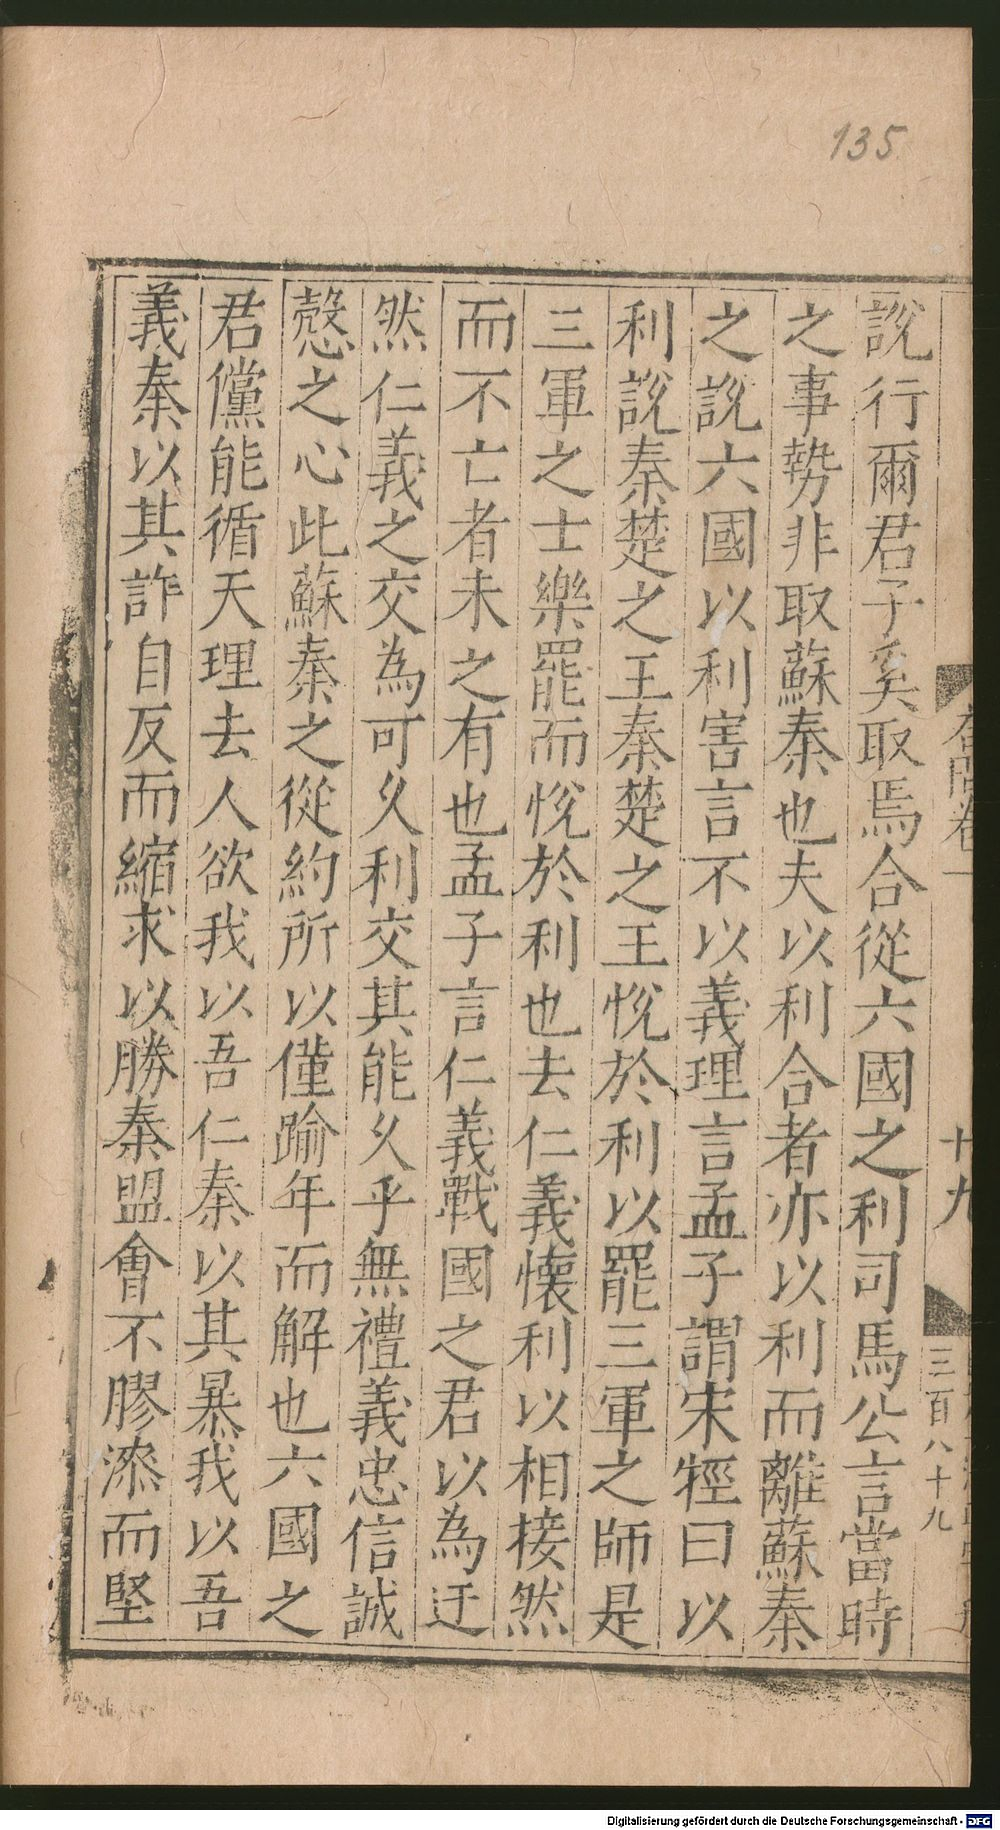 135
說行爾君子奚取焉合從六國之利司馬公言當時
之事勢非取蘇秦也夫以利合者亦以利而離蘇秦
之說六國以利害言不以義理言孟子謂宋牼曰以
利說秦楚之王秦楚之王悅於利以罷三軍之師是
三軍之士樂罷而悅於利也去仁義懷利以相接然
而不亡者未之有也孟子言仁義戰國之君以為迂
然仁義之交為可久利交其能久乎無禮義忠信誠
慤之心此蘇秦之從約所以僅踰年而解也六國之
君儻能循天理去人欲我以吾仁秦以其暴我以吾
義秦以其詐自反而縮求以勝秦盟會不膠漆而堅
卷一
十九
三百八十九
Digitalisierung gefördert durch die Deutsche Forschungsgemeinschaft - DFG